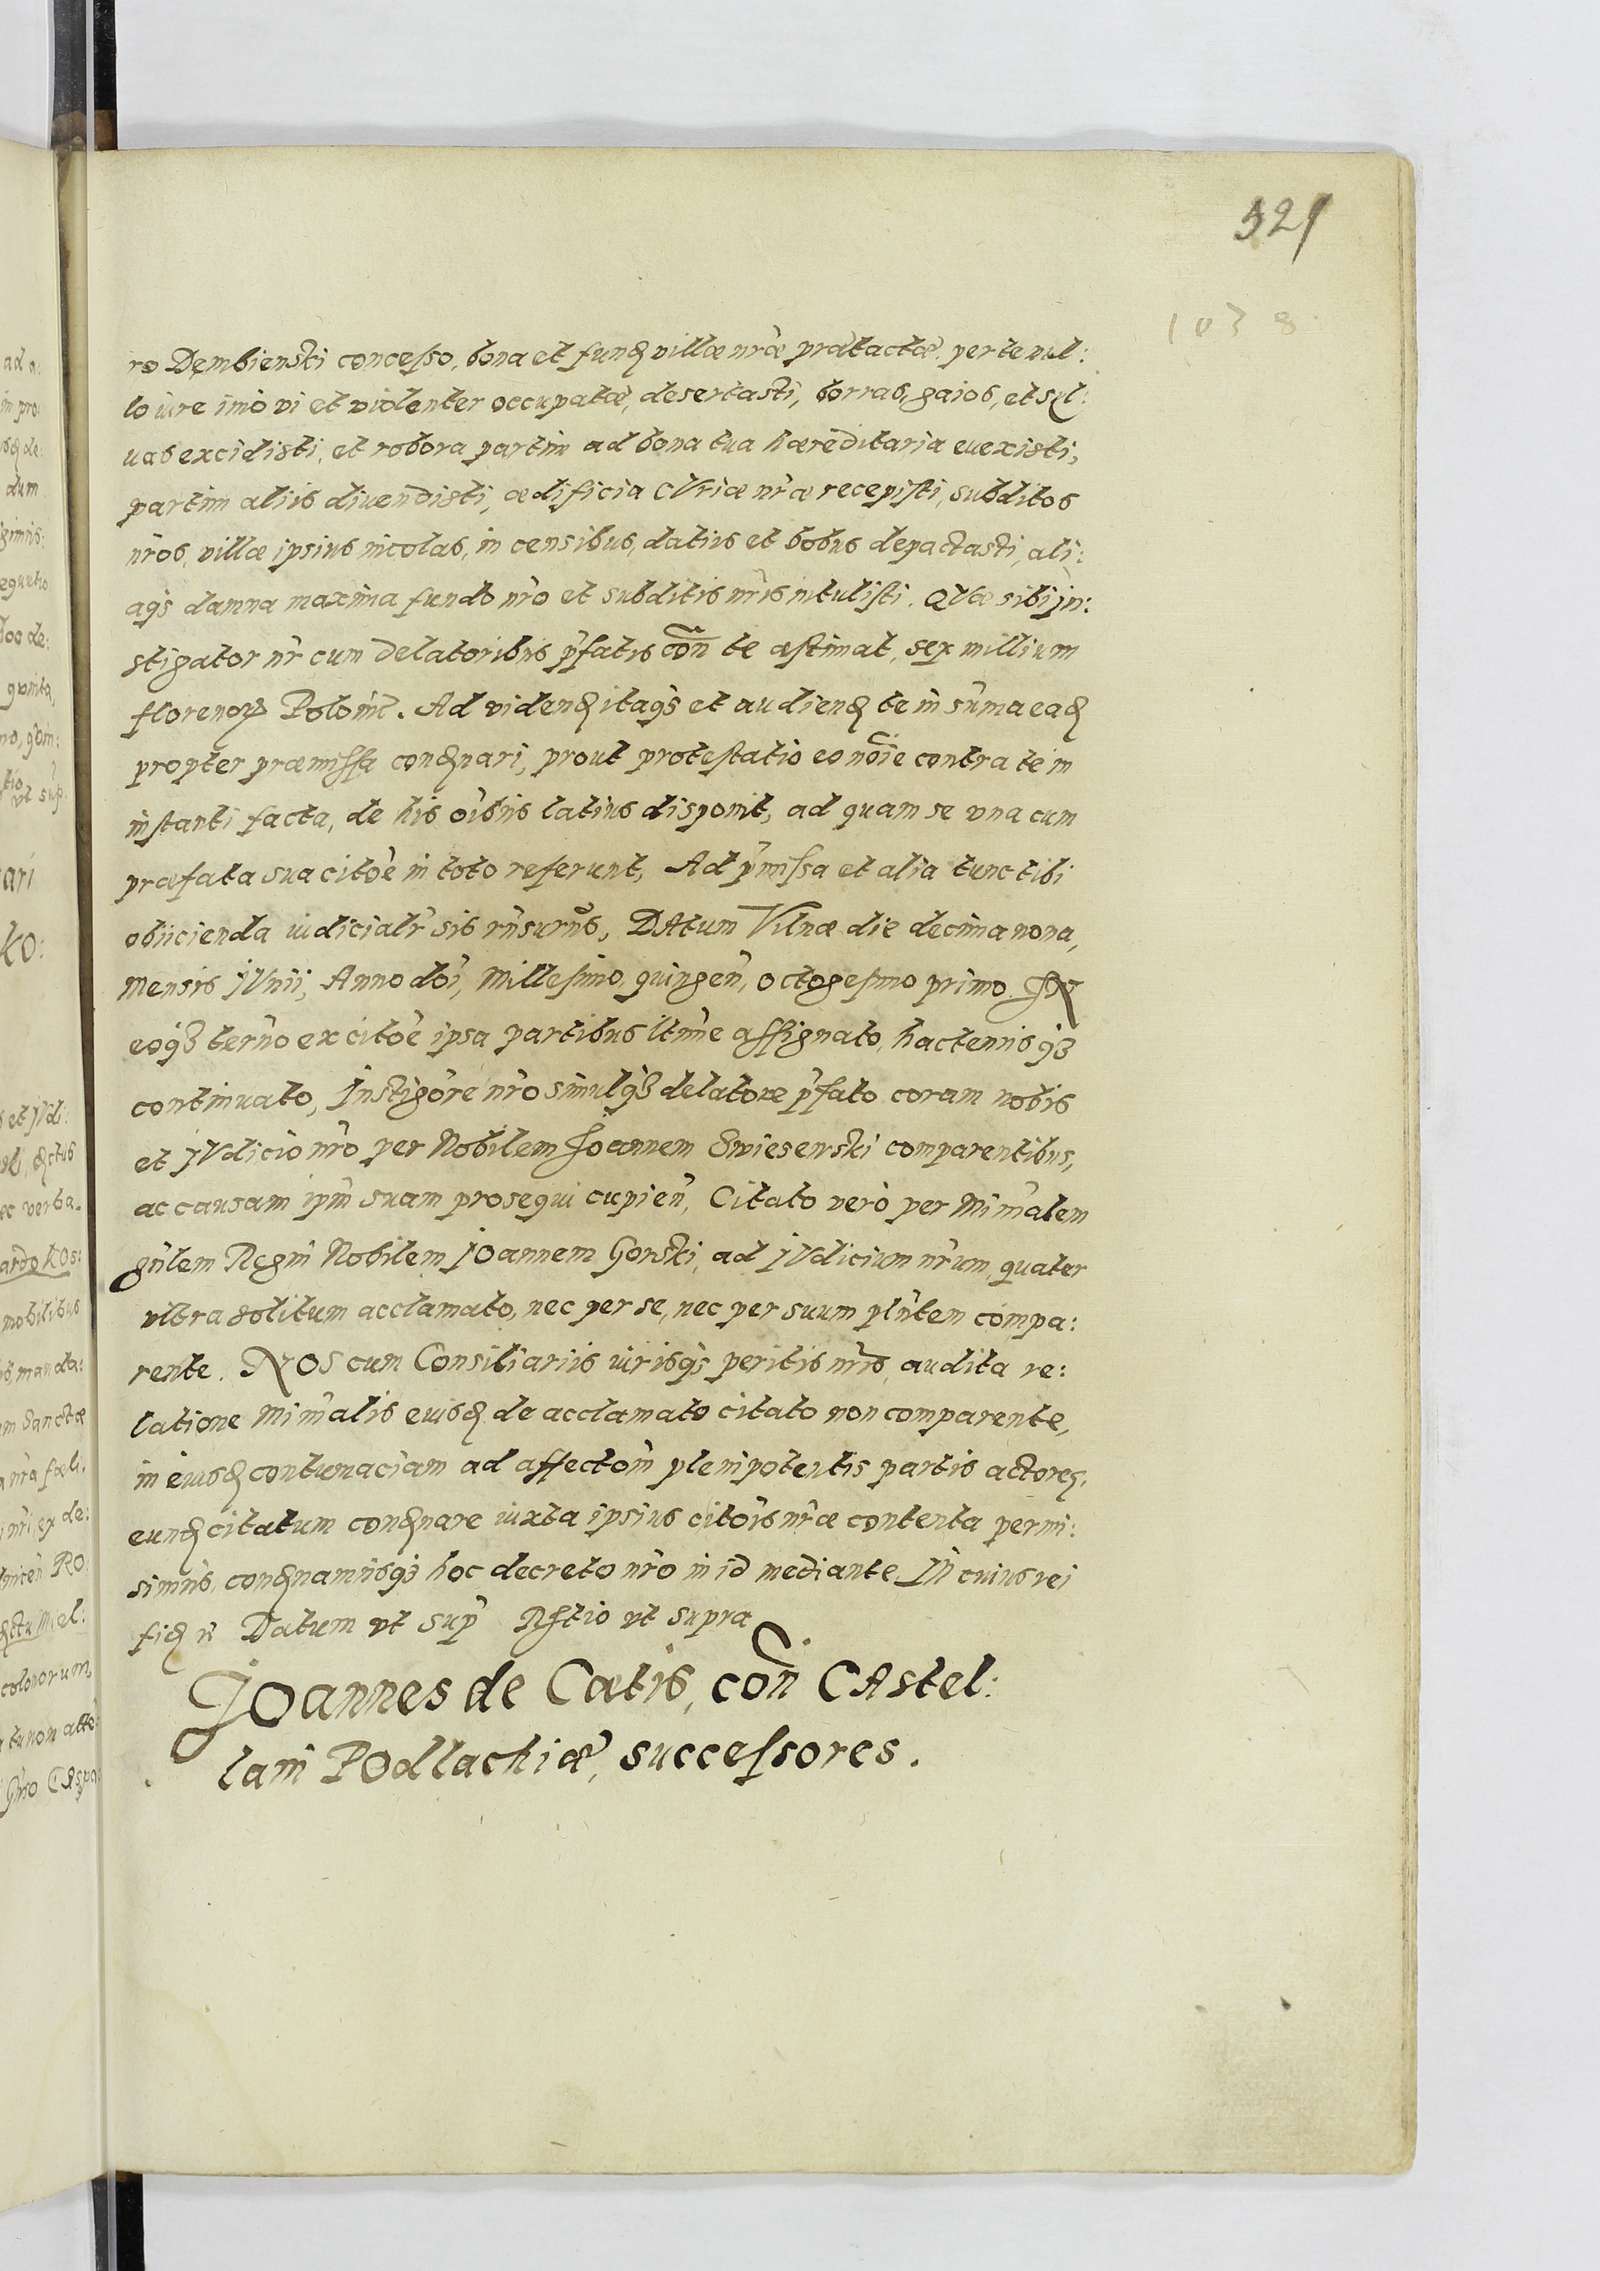 521
1038
ro Dęmbienski concesso, bona et funḍ villæ nr̃æ prætactæ, per te nul:
lo iure imò vi et violenter occupatæ, desertasti, borras, gaios, et syl:
uas excidisti, et robora partim ad bona tua hæreditaria euexisti,
partim aliis diuendisti, ædificia CVriæ nr̃æ recepisti, subditos
nr̃os, villæ ipsius incolas, in censibus, datiis et bobus depactasti, ali:
aqȝ damna maxima fundo nr̃o et subditis nr̃is intulisti. QVæ sibi jn:
stigator nr̃ cum delatoribus p̃fatis con̄ te æstimat, sex millium
florenoꝝ Polonic̃. Ad videnḍ itaqȝ et audienḍ te in sum̃a eaḍ
propter præmissa conḍnari, prout protestatio eo noĩe contra te in
instanti facta, de his oĩbus latius disponit, ad quam se vna cum
præfata sua citõe in toto referunt, Ad p̃missa et alia tunc tibi
obiicienda iudicialr̃ sis rñsurus, DAtum Vilnæ die decima nona,
mensis jVnii, Anno doĩ, Millesimo, quingen̄, octogesimo primo. IN
eoqȝ ter̃no ex citõe ipsa partibus ltĩme assignato, hactenusqȝ
continuato, Instigõre nr̃o simulqȝ delatore p̃fato coram nobis
et jVdicio nr̃o per Nobilem Joannem Swiesewski comparentibus,
ac causam ipm̃ suam prosequi cupien̄, Citato verò per Minr̃alem
gñlem Regni Nobilem jOannem Gorski, ad jVdicium nr̃um, quater
vltra solitum acclamato, nec per se, nec per suum plñtem compa:
rente. NOS cum Consiliariis iurisqȝ peritis nr̃is, audita re:
latione Minr̃alis eiusḍ de acclamato citato non comparente,
in eiusḍ contumaciam ad affectõm plenipotentis partis actoreꝭ,
eunḍ citatum conḍnare iuxta ipsius citõis nr̃æ contenta permi:
simus, conḍnamusqȝ hoc decreto nr̃o in id mediante. IN cuius rei
fiḍ Datum vt sup̃ Rl̃tio vt supra
JOannes de Cœtis, con̄ CAstel:
lam̃ POdlachiæ, successores.